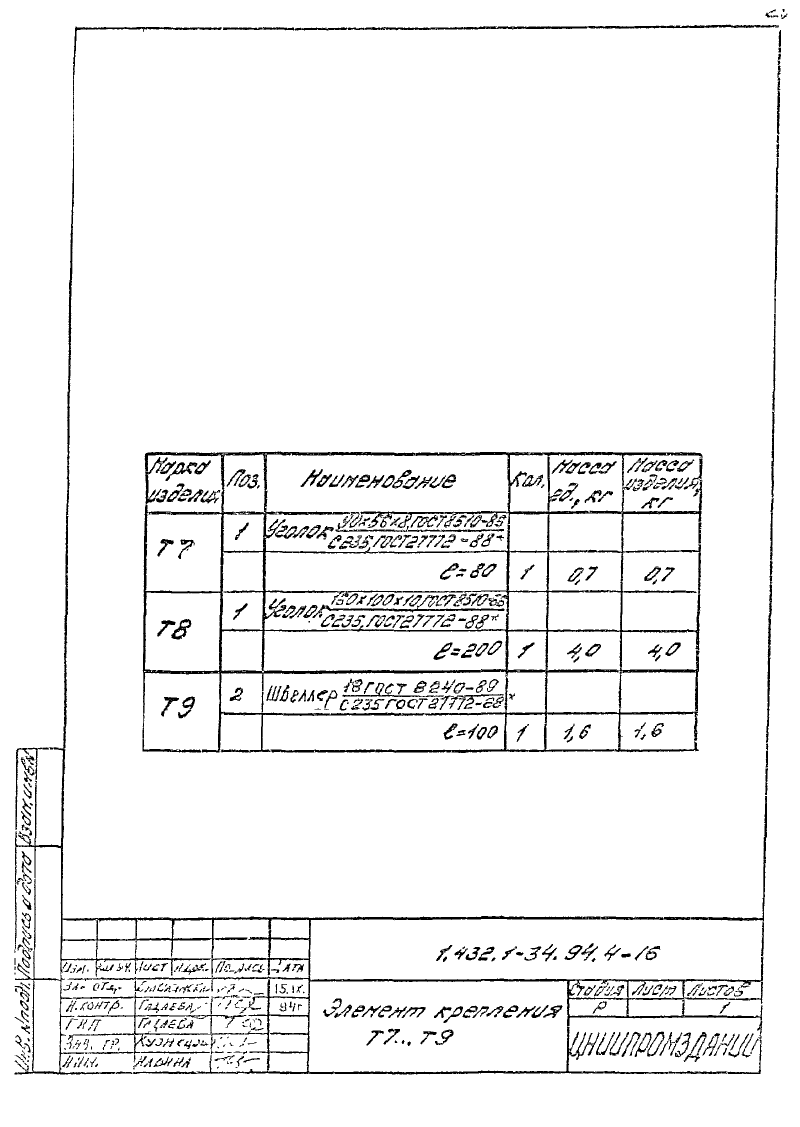 Марка изделия Поз. Наименование Кол. Масса ед., кг Масса изделия, кг
Т7 1 Уголок 90×56×8, ГОСТ 8510-86
С235, ГОСТ 27772-88*
ℓ=80 1 0,7 0,7
Т8 1 Уголок 160×100×10, ГОСТ 8510-86
С235, ГОСТ 27772-88*
ℓ=200 1 4,0 4,0
Т9 2 Швеллер 18 ГОСТ 8240-89
С235 ГОСТ 27772-88*
ℓ=100 1 1,6 1,6
Взам. инв N
Подпись и дата
Инв. N подл.
1.432.1-34.94.4-16
Изм. Кол.уч. Лист N док. Подпись Дата
Зав. отд. 15.IX.
Н.контр. Гадаева 94г
ГИП Гадаева
Зав. гр. Кузнецова
Инж. Ильина
Элемент крепления
Т7... Т9
Стадия Лист Листов
Р 1
ЦНИИПРОМЗДАНИЙ